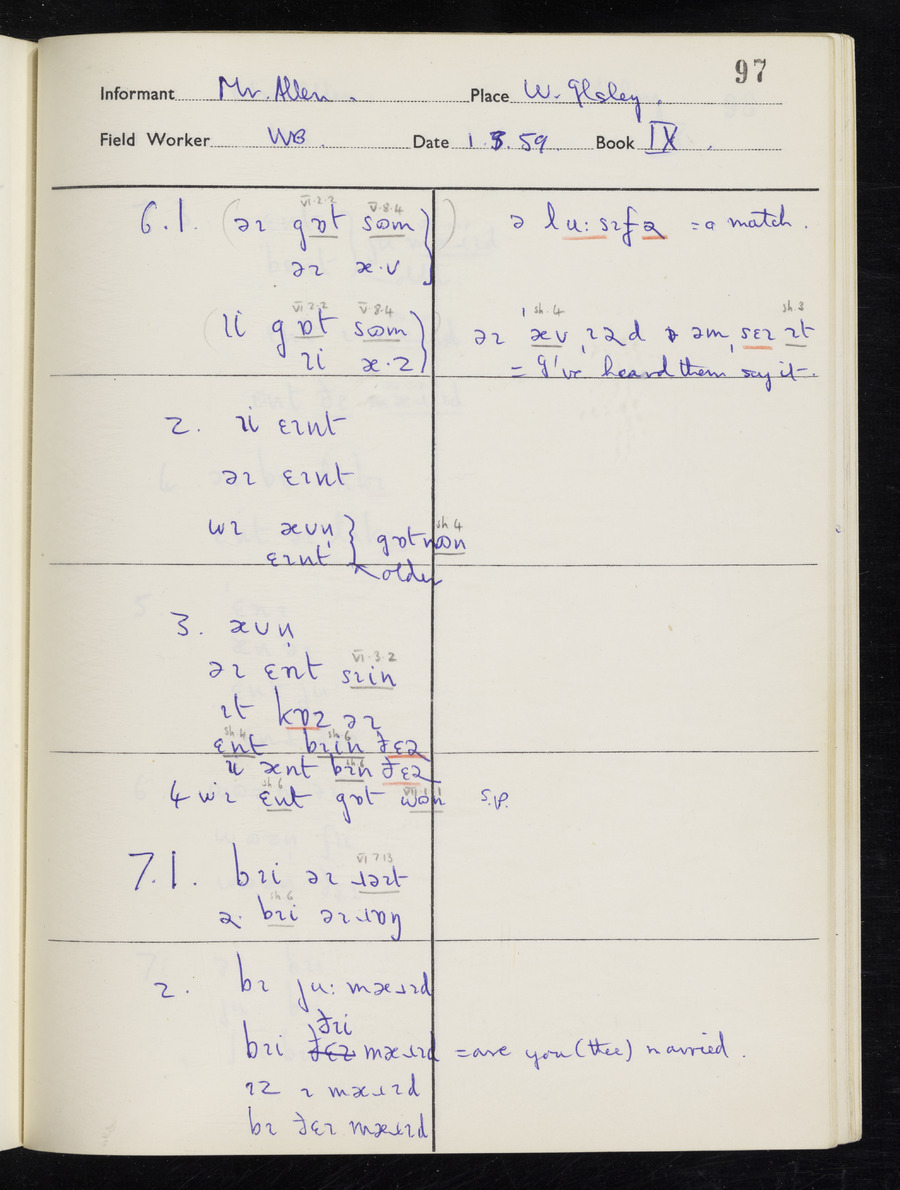 97
Informant Mr. Allen. Place W.
Field Worker WB. Date 1.3.59 Book IX.
6.1. (əɪ gɒt sʊm })
VI.2.2 V.8.4
əɪ æ·v
ə lu:sɪfə = a match.
(ɪi gɒt sʊm })
VI.2.2 V.8.4
ɪi æ·z
əɪ ˈæv ɪəd əm ˌsɛɪ ɪt
sh.4 sh.3
= I've heard them say it.
2. ɪi ɛɪnt
əɪ ɛɪnt
wɪ ævn̩ } gɒt
sh 4
ɛɪnt older
3. ævn̩
əɪ ɛnt sɪin
VI.3.2
ɪt kɒz əɪ
ɛnt bɪin ðɛə
sh 4 sh 6
ænt bɪn ðɛə
sh 6
4 wɪ ɛnt gɒt wʊn s.p.
sh 6 VII.1.1
7.1. bɪi əɪ ɹəɪt
VI 7 13
2. bɪi əɪ ɹɒŋ
sh.6
2. bɪ ju: mæɹɪd
ðɪi
bɪi mæɹɪd = are you (thee) married.
ɪz ɪ mæɹɪd
bɪ ðɛɪ mæɹɪd